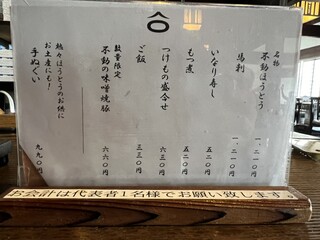 名物
不動ほうとう 一、二一〇円
馬刺 一、二一〇円
いなり寿し 五二〇円
もつ煮 五二〇円
つけもの盛合せ 六三〇円
ご飯 三三〇円
数量限定
不動の味噌焼豚 六六〇円
ほうとうのお供に
お土産にも!
手ぬぐい 九九〇円
お会計は代表者1名様でお願い致します。